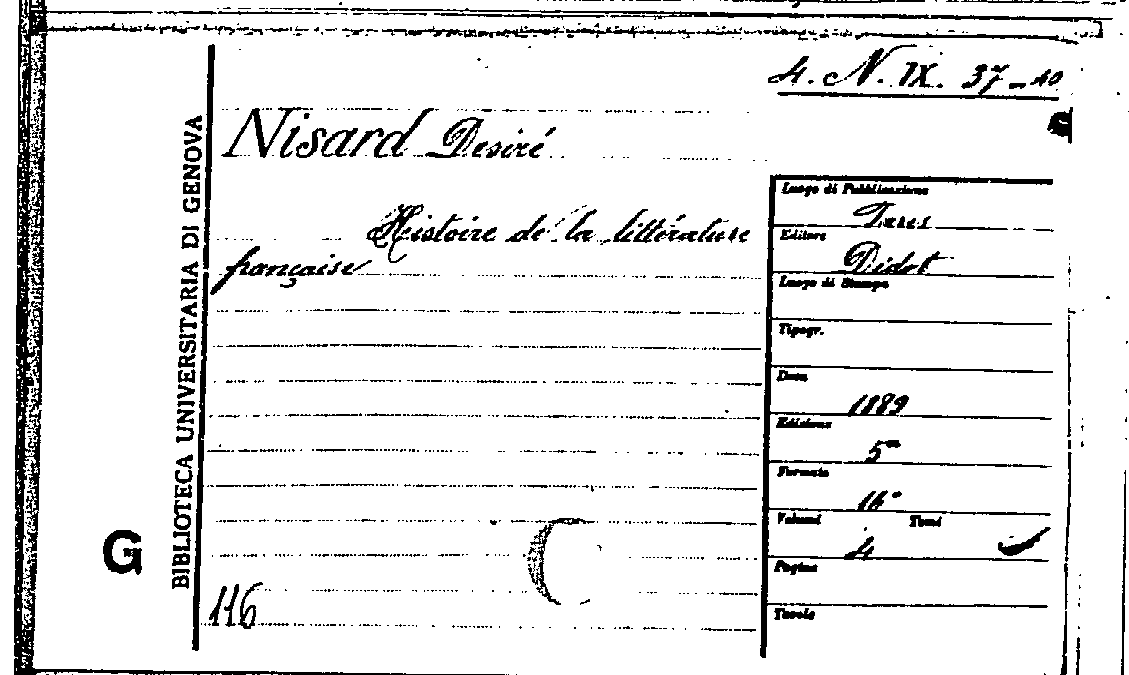 4. N. IX. 37-40
Nisard Desiré
Histoire de la littérature
française
BIBLIOTECA UNIVERSITARIA DI GENOVA
G
116
Luogo di Pubblicazione
Paris
Editore
Didot
Luogo di Stampa
Tipogr.
Data
1889
Edizione
5ª
Formato
16°
Volumi Tomi
4
Pagine
Tavole